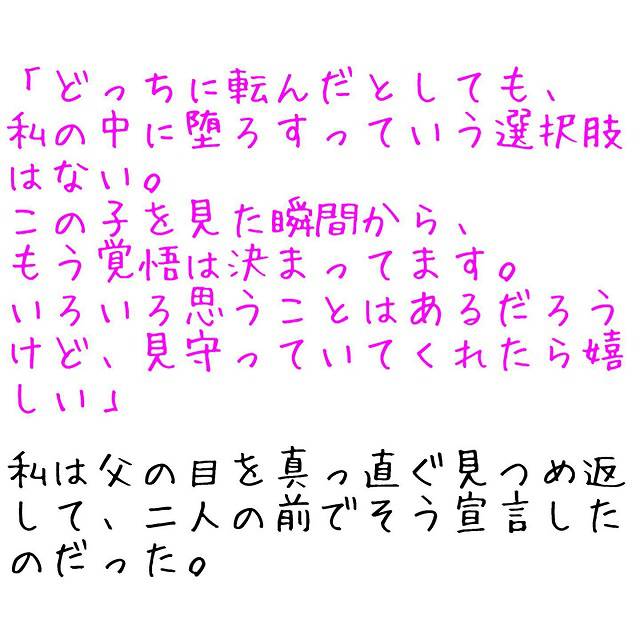 「どっちに転んだとしても、
私の中に堕ろすっていう選択肢
はない。
この子を見た瞬間から、
もう覚悟は決まってます。
いろいろ思うことはあるだろう
けど、見守っていてくれたら嬉
しい」
私は父の目を真っ直ぐ見つめ返
して、二人の前でそう宣言した
のだった。